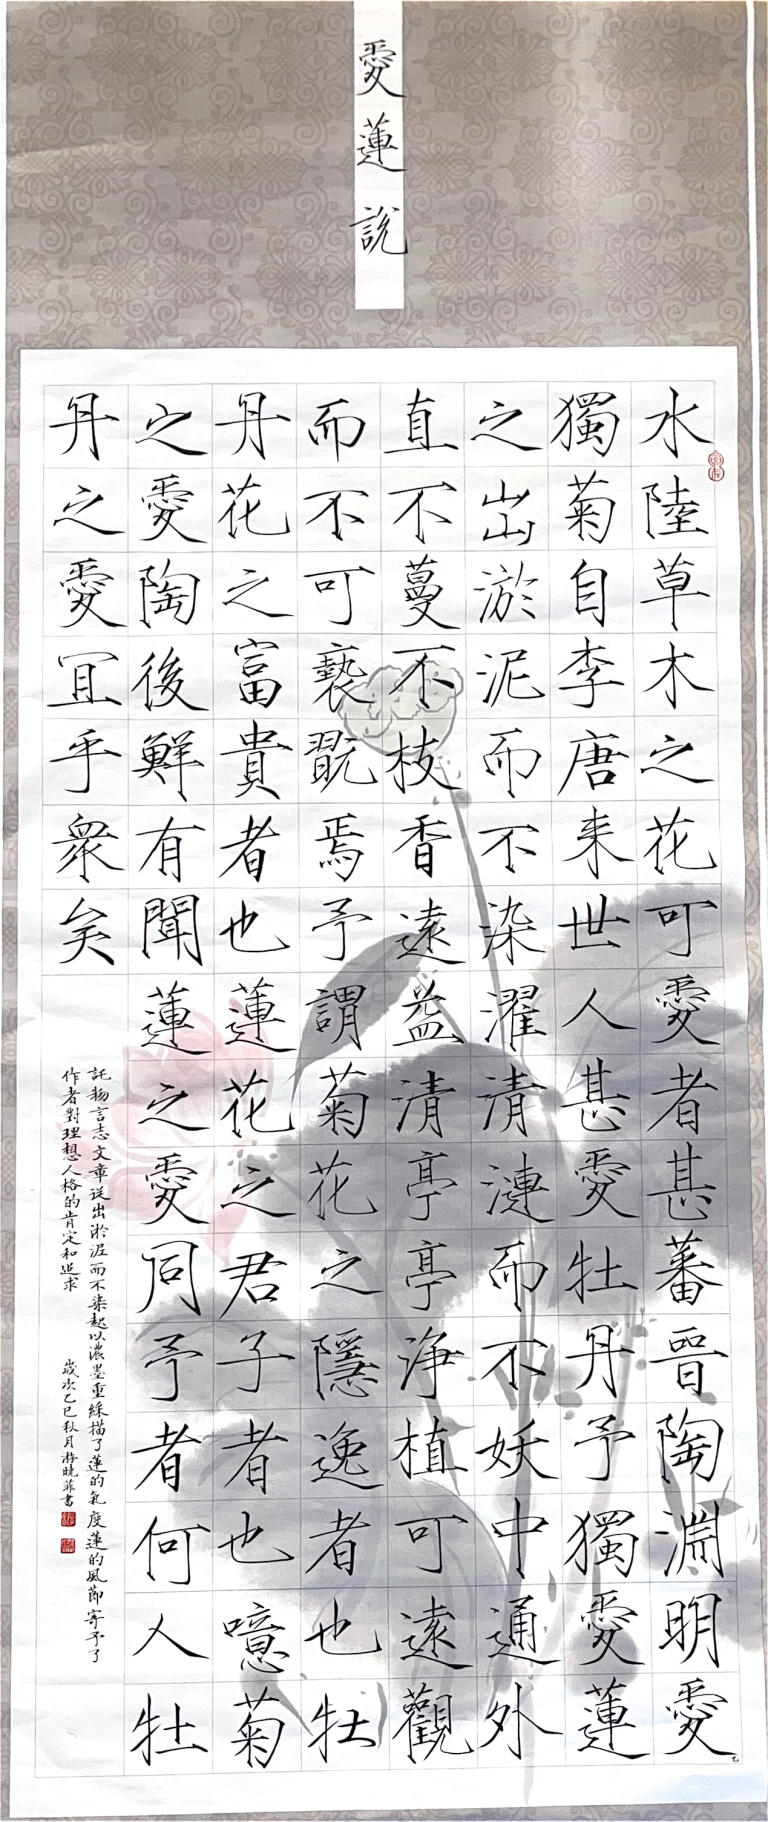 愛蓮說
水陸草木之花可愛者甚蕃晉陶淵明愛
獨菊自李唐来世人甚愛牡丹予獨愛蓮
之出淤泥而不染濯清漣而不妖中通外
直不蔓不枝香遠益清亭亭淨植可遠觀
而不可褻翫焉予謂菊花之隱逸者也牡
丹花之富貴者也蓮花之君子者也噫菊
之愛陶後鮮有聞蓮之愛同予者何人牡
丹之愛宜乎衆矣
託物言志文章從出淤泥而不染起以濃墨重綵描了蓮的氣度蓮的風節寄予了
作者對理想人格的肯定和追求 歲次乙巳秋月游曉菲書